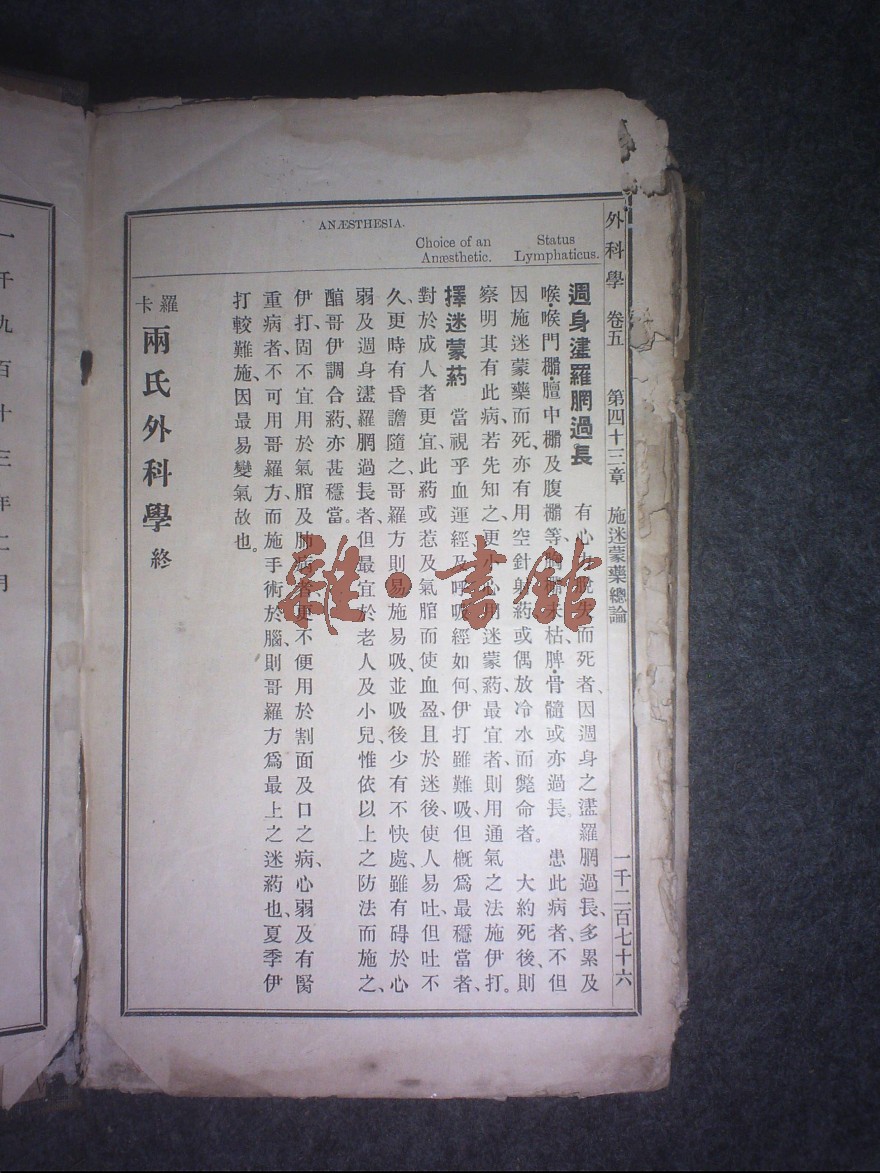 ANÆSTHESIA.
Choice of an
Anæsthetic.
Status
Lymphaticus.
外科學 卷五 第四十三章 施迷蒙藥總論 一千二百七十六
週身羅過長 有心而死者、因週身之羅過長、多累及
喉、喉門膻中及腹等、枯、脾、骨髓或亦過長。患此病者、不但
因施迷蒙藥而死、亦有用空針射葯或偶放冷水而斃命者。大約死後、則
察明其有此病若先知之、更小心用迷蒙葯、最宜者、則用通氣之法施伊打。
擇迷蒙葯 當視乎血運經及呼吸經如何、伊打雖難吸、但概爲最穩當者、
對於成人者更宜、此葯或惹及氣而使血盈且於迷後、使人易吐、但吐不
久、更時有昏譫隨之、哥羅方則易施易吸、並吸後少有不快處、雖有碍於心
弱及週身羅過長者、但最宜於老人及小兒、惟依以上之防法而施之、
哥伊調合葯、亦甚穩當。
伊打、固不宜用於氣及肺病者、更不便用於割面及口之病、心弱及有腎
重病者、不可用哥羅方、而施手術於腦、則哥羅方爲最上之迷葯也、夏季伊
打較難施、因最易變氣故也。
羅卡兩氏外科學 終
一千九百十三年二月
雜·書館